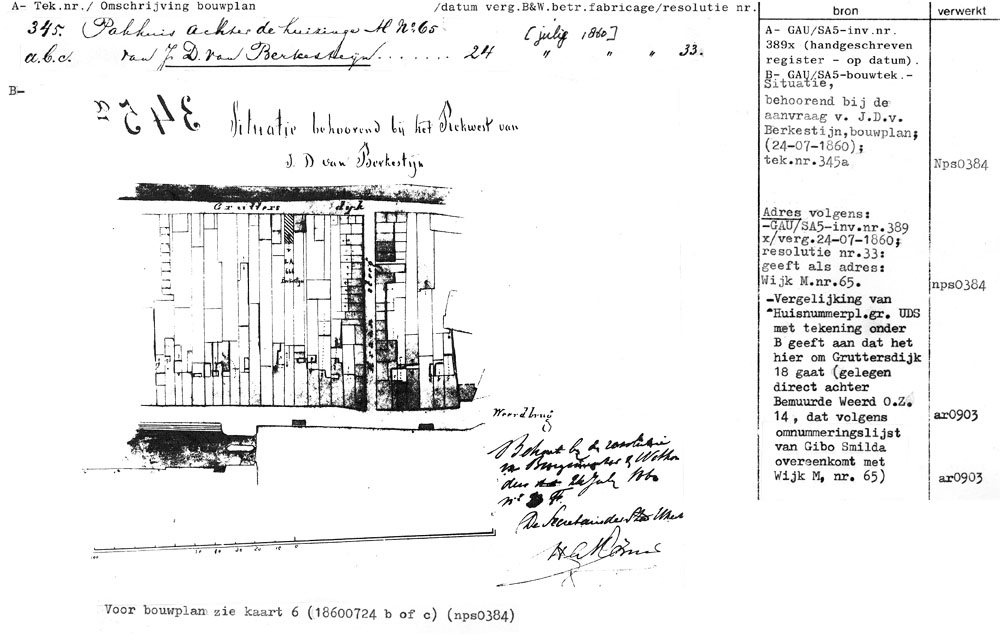 A- Tek.nr./ Omschrijving bouwplan /datum verg.B&W.betr.fabricage/resolutie nr.
345. Pakhuis achter de huisinge M No 65 [julij 1860]
a.b.c. van J. D. van Berkesteijn ........ 24 " " " 33.
B-
345 a
Situatie behoorend bij het Rekwest van
J. D van Berkestijn
Grutters dijk
Berkestijn
Weerdbrug
Behoort bij de resolutie
van Burgemeester & Wethou
ders 24 July 1860
De Secretaris der Stad
Voor bouwplan zie kaart 6 (18600724 b of c) (nps0384)
bron
verwerkt
A- GAU/SA5-inv.nr.
389x (handgeschreven
register - op datum).
B- GAU/SA5-bouwtek.-
Situatie,
behoorend bij de
aanvraag v. J.D.v.
Berkestijn,bouwplan;
(24-07-1860);
tek.nr.345a
Nps0384
Adres volgens:
-GAU/SA5-inv.nr.389
x/verg.24-07-1860;
resolutie nr.33:
geeft als adres:
Wijk M.nr.65.
nps0384
-Vergelijking van
Huisnummerpl.gr. UDS
met tekening onder
B geeft aan dat het
hier om Gruttersdijk
18 gaat (gelegen
direct achter
Bemuurde Weerd O.Z.
14, dat volgens
omnummeringslijst
van Gibo Smilda
overeenkomt met
Wijk M, nr. 65)
ar0903
ar0903